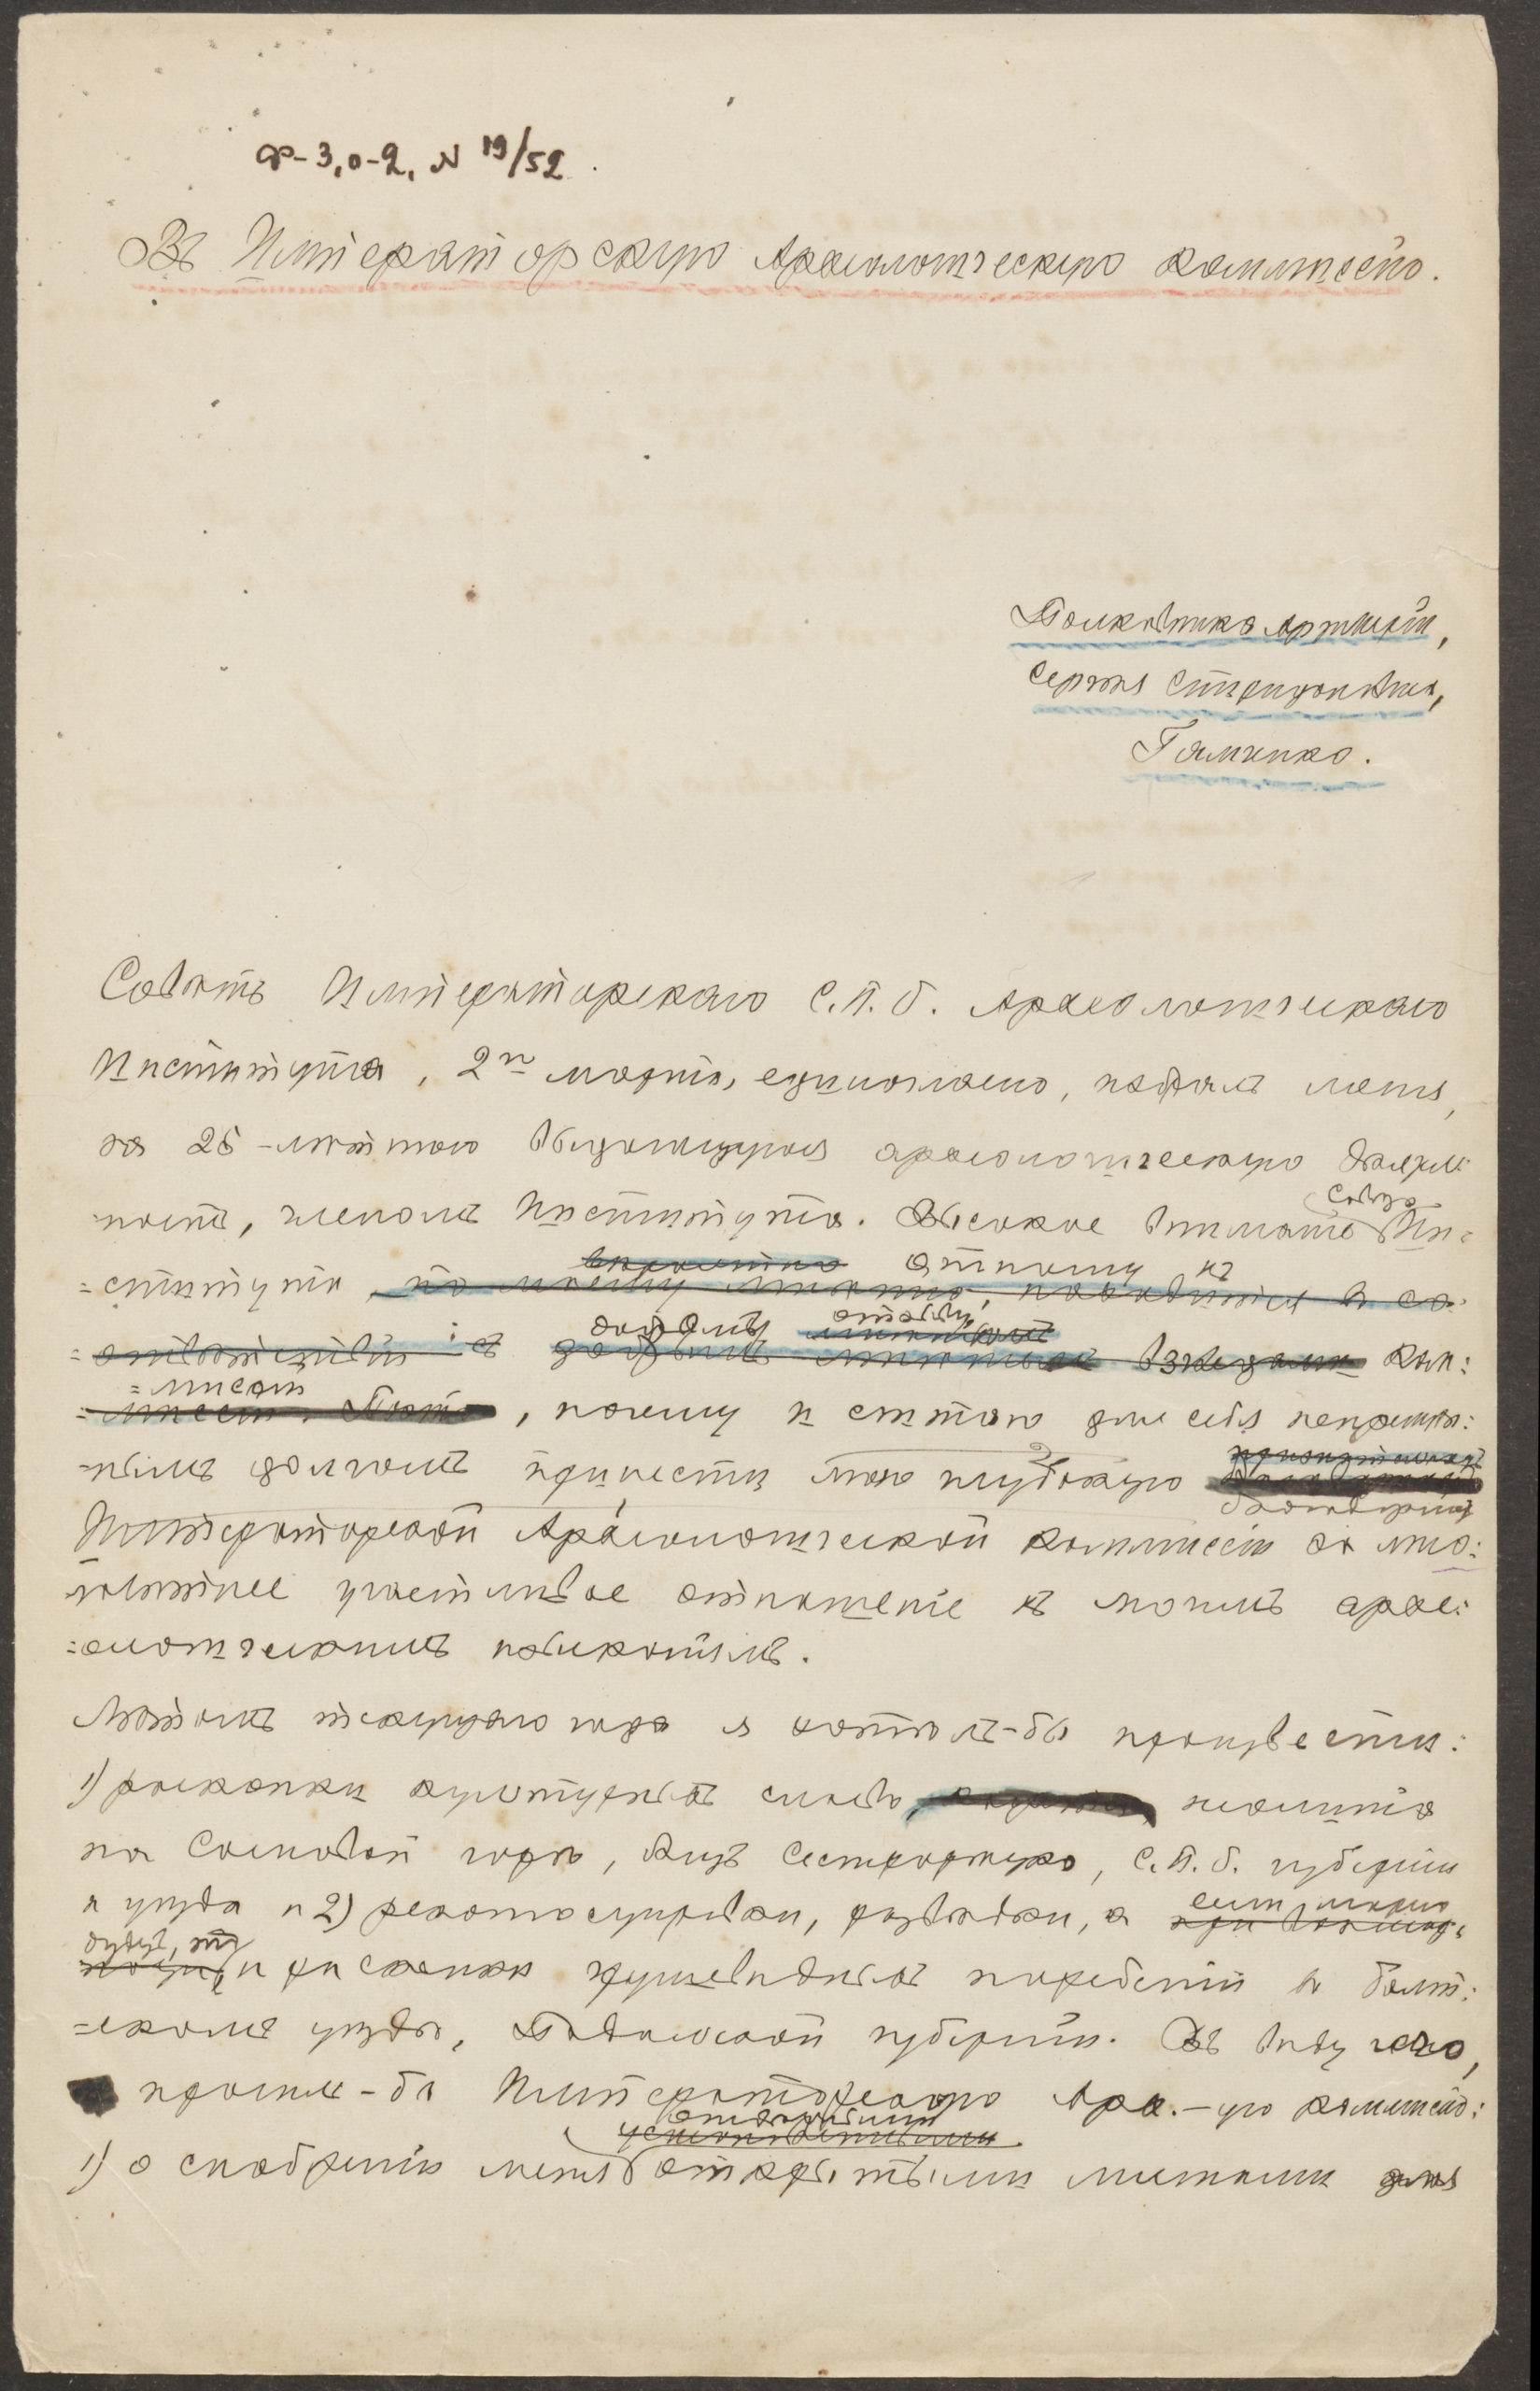 Ф-3, о-2, N 19/52.
Въ Императорскую Археологическую Коммиссію.
Полковника Артиллеріи,
Сергѣя Спиридоновича,
Гамченко.
Совѣтъ Императорскаго С.П.Б. Археологическаго
Института, 2го марта, единогласно, избралъ меня,
за 25-лѣтнюю выдающуюся археологическую дѣятель:
:ность, членомъ Института. Высокое вниманіе Совѣта Ин:
=ститута,
:
=миссіи, почему и считаю для себя непремѣн:
=нымъ долгомъ принести мою глубокую благодарность
Императорской Археологической Коммиссіи за мно:
голѣтнее участливое отношеніе къ моимъ архе:
:ологическимъ изысканіямъ.
Лѣтомъ текущаго года я хотѣлъ-бы произвести:
1) раскопки культурныхъ слоевъ неолита
на Сосновой горѣ, близъ Сестрорѣцка, С.П.Б. губерніи
и уѣзда и 2) рекогносцировки, развѣдки, а если можно
будетъ, то и раскопки грушевидныхъ погребеній въ Балт:
=скомъ уѣздѣ, Подольской губерніи. Въ виду чего,
просилъ-бы Императорскую Арх.-ую Коммиссію:
1) о снабженіи меня открытыми листами для